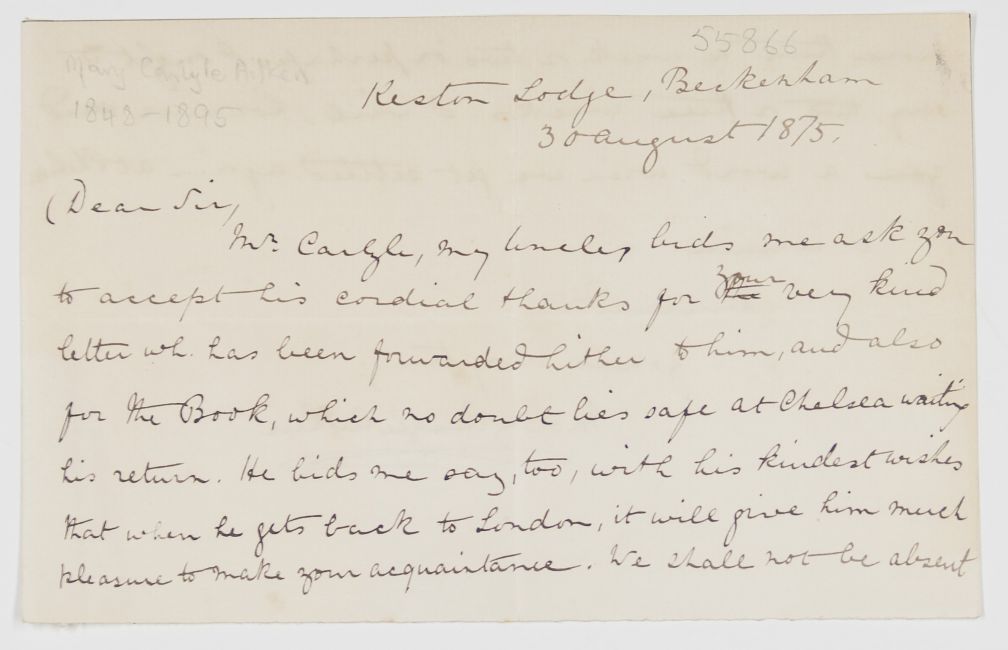 55866
Mary Carlyle Aitken
1848-1895
Keston Lodge, Beckenham
30 August 1875.
(Dear Sir,
Mr. Carlyle, my Uncle, bids me ask you
to accept his cordial thanks for the your very kind
letter wh. has been forwarded hither to him, and also
for the Book, which no doubt lies safe at Chelsea waiting
his return. He bids me say, too, with his kindest wishes
that when he gets back to London, it will give him much
pleasure to make your acquaintance. We shall not be absent